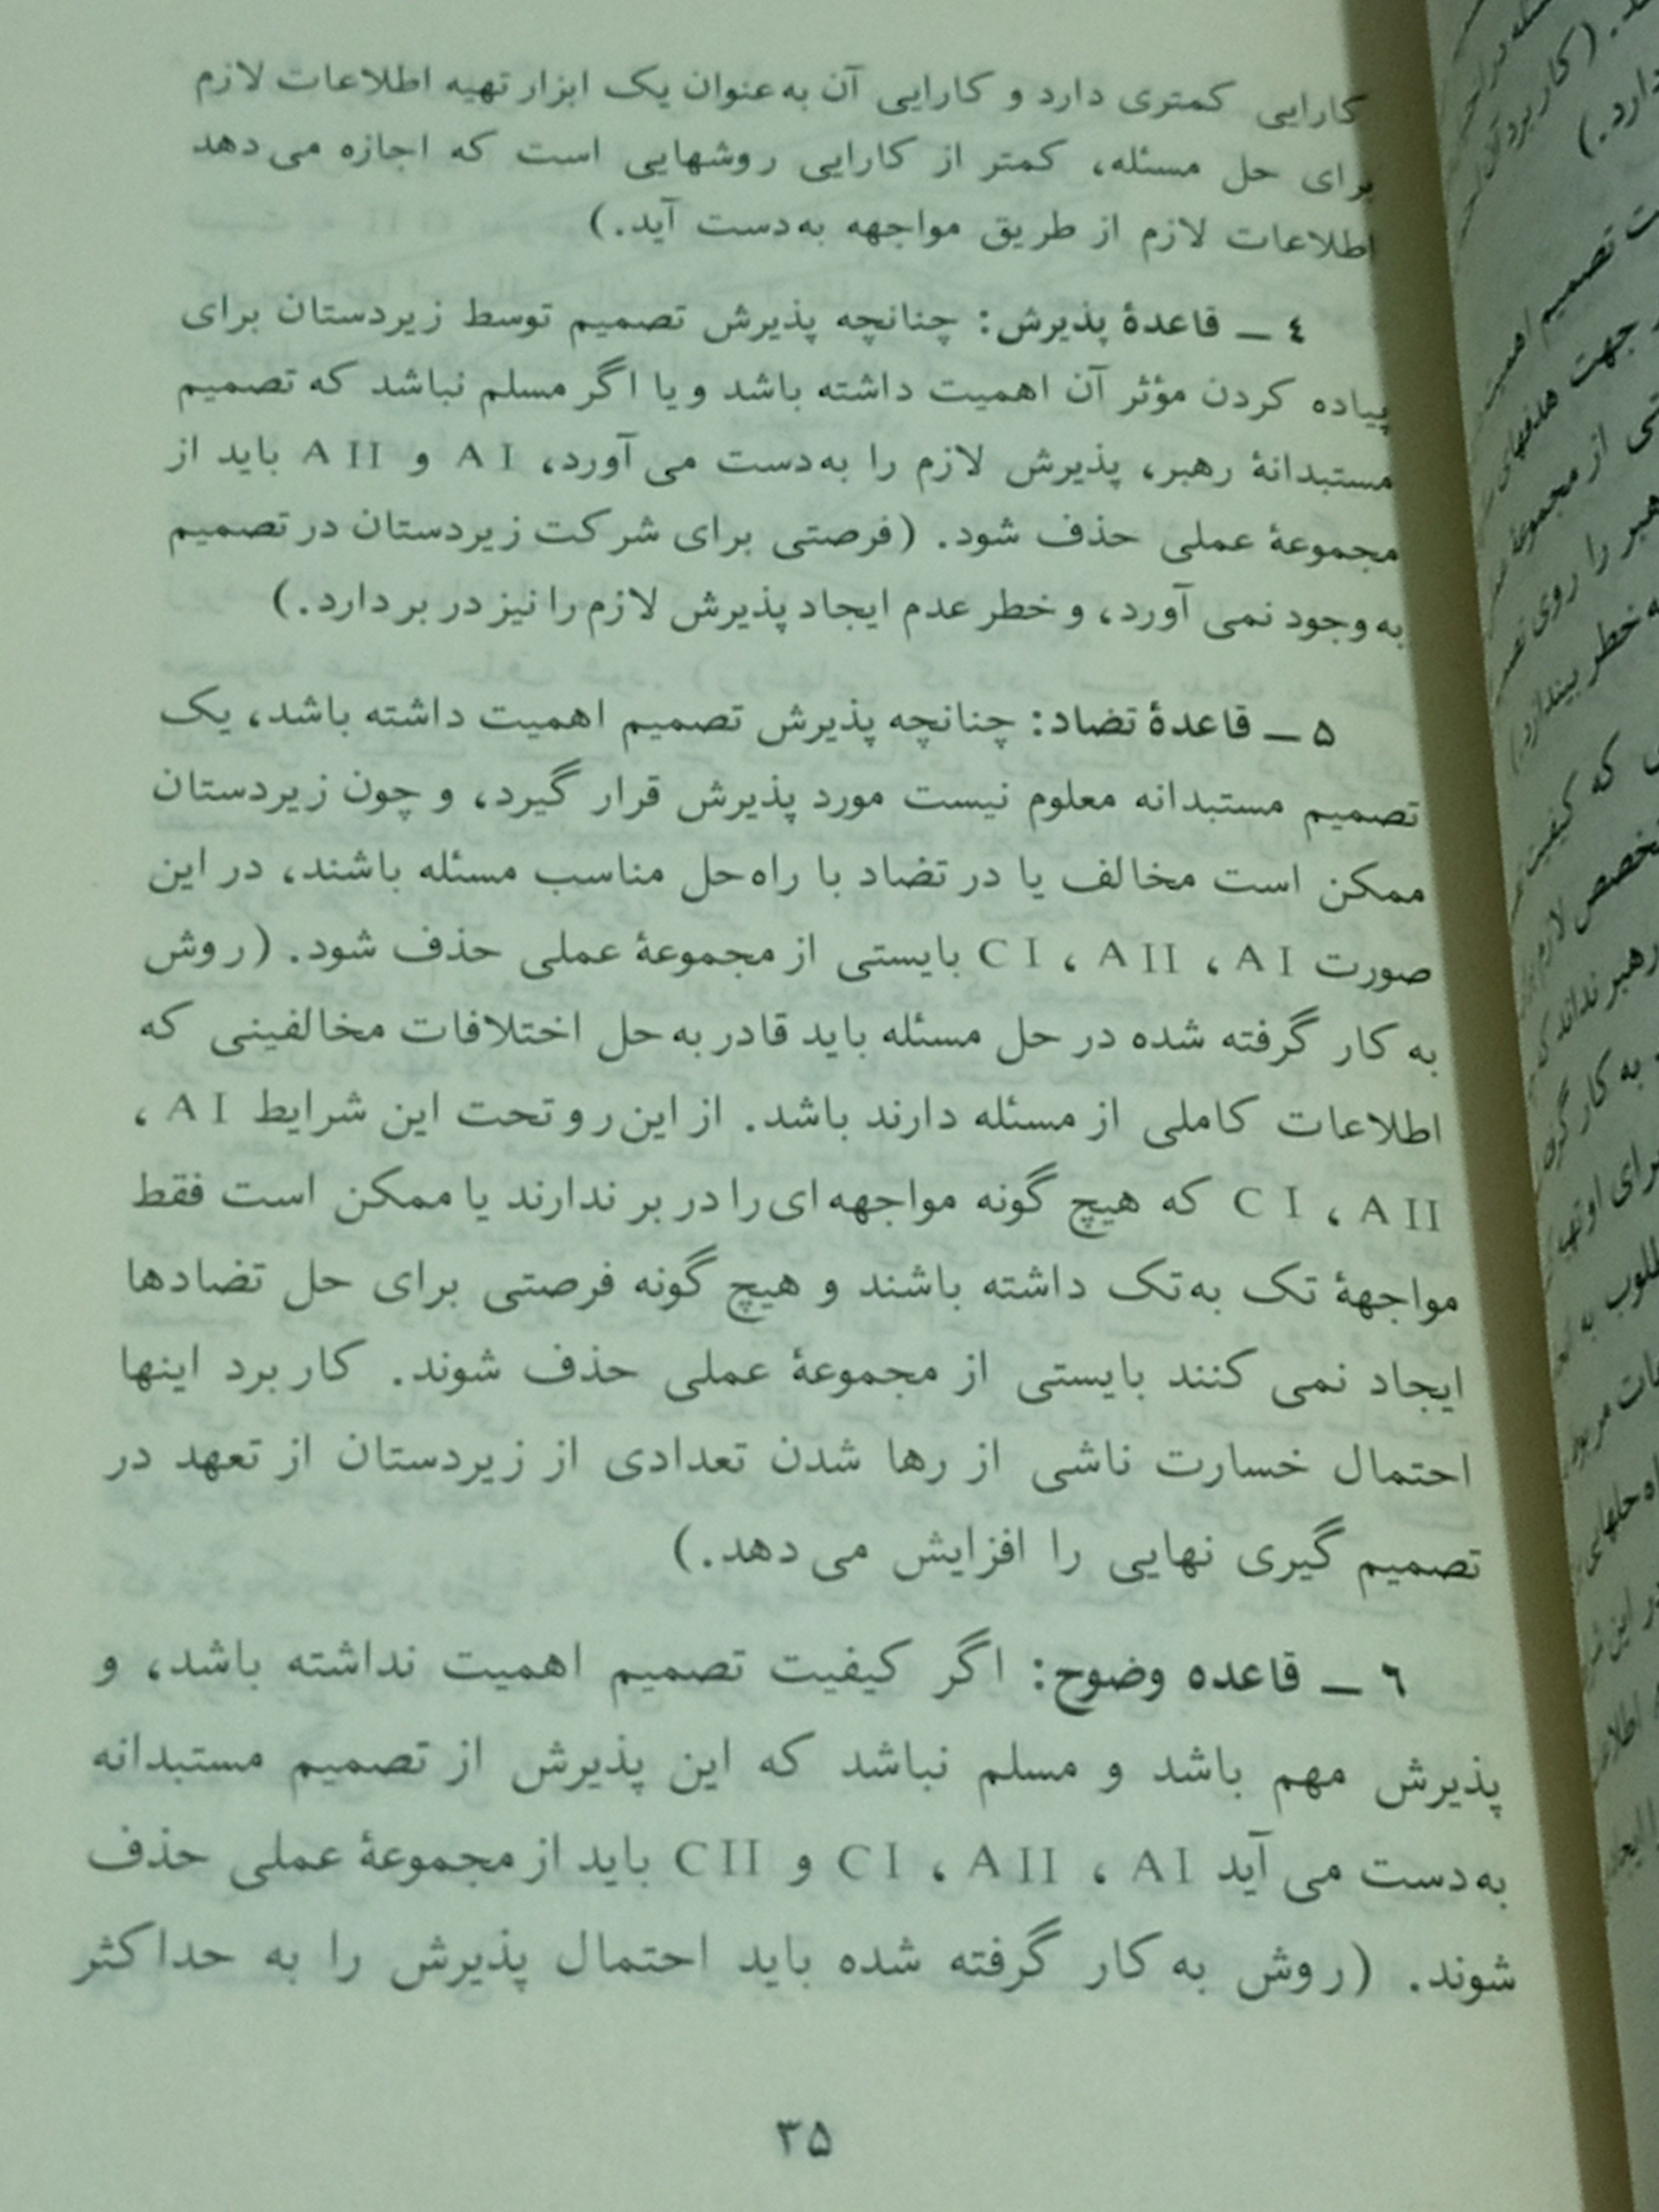 کارایی کمتری دارد و کارایی آن به‌عنوان یک ابزار تهیه اطلاعات لازم
برای حل مسئله، کمتر از کارایی روشهایی است که اجازه می‌دهد
اطلاعات لازم از طریق مواجهه به‌دست آید.)
٤ ـ قاعدهٔ پذیرش: چنانچه پذیرش تصمیم توسط زیردستان برای
پیاده کردن مؤثر آن اهمیت داشته باشد و یا اگر مسلم نباشد که تصمیم
مستبدانهٔ رهبر، پذیرش لازم را به‌دست می‌آورد، A I و A II باید از
مجموعهٔ عملی حذف شود. (فرصتی برای شرکت زیردستان در تصمیم
به وجود نمی آورد، و خطر عدم ایجاد پذیرش لازم را نیز در بر دارد.)
۵ ـ قاعدهٔ تضاد: چنانچه پذیرش تصمیم اهمیت داشته باشد، یک
تصمیم مستبدانه معلوم نیست مورد پذیرش قرار گیرد، و چون زیردستان
ممکن است مخالف یا در تضاد با راه‌حل مناسب مسئله باشند، در این
صورت A I، A II، C I بایستی از مجموعهٔ عملی حذف شود. (روش
به کار گرفته شده در حل مسئله باید قادر به حل اختلافات مخالفینی که
اطلاعات کاملی از مسئله دارند باشد. از این‌رو تحت این شرایط A I،
A II، C I که هیچ گونه مواجهه‌ای را در بر ندارند یا ممکن است فقط
مواجههٔ تک به‌تک داشته باشند و هیچ گونه فرصتی برای حل تضادها
ایجاد نمی کنند بایستی از مجموعهٔ عملی حذف شوند. کاربرد اینها
احتمال خسارت ناشی از رها شدن تعدادی از زیردستان از تعهد در
تصمیم گیری نهایی را افزایش می‌دهد.)
٦ ـ قاعده وضوح: اگر کیفیت تصمیم اهمیت نداشته باشد، و
پذیرش مهم باشد و مسلم نباشد که این پذیرش از تصمیم مستبدانه
به‌دست می‌آید A I، A II، C I و C II باید از مجموعهٔ عملی حذف
شوند. (روش به کار گرفته شده باید احتمال پذیرش را به حداکثر
۳۵